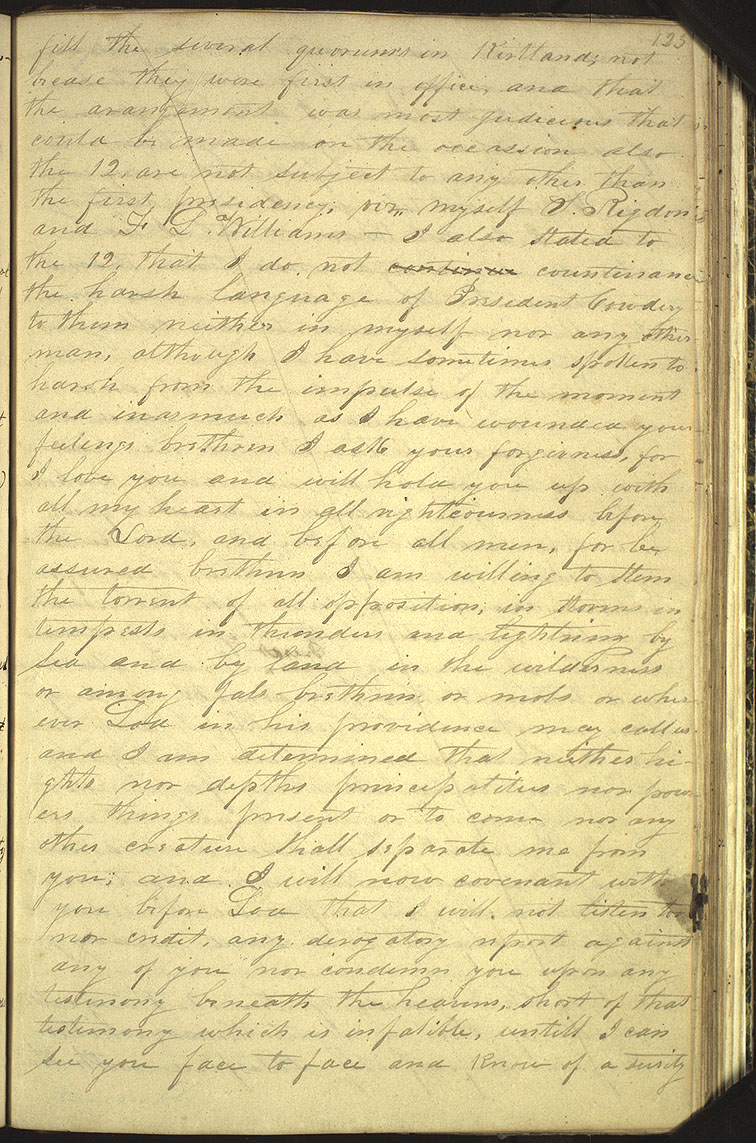 123
fill the several quorums in Kirtland; not
becase they were first in office, and that
the arangement was most judicious that
could be made on the occassion also
the 12, are not subject to any other than
the first presidency; viz. myself S. Rigdon
and F G. Williams— I also stated to
the 12, that I do not continue countinance
the harsh language of President Cowdery
to them neither in myself nor any other
man, although I have sometimes spoken to
harsh from the impulse of the moment
and inasmuch as I have wounded your
feelings brethren I ask your forgivness, for
I love you and will hold you up with
all my heart in all righteousness before
the Lord, and before all men, for be
assured brethren I am willing to stem
the torrent of all opposition, in storms in
tempests in thunders and lightning by
sea and by land in the wilderness
or among fals brethren, or mobs or wher
ever God in his providence may call us
and I am determined that neither hi-
ghts nor depths principalities nor pow-
ers things present or to come nor any
other creature shall separate me from
you; and I will now covenant with
you before God that I will not listen too
nor credit, any derogatory report against
any of you nor condemn you upon any
testimony beneath the heavens, short of that
testimony which is infalible, untill I can
see you face to face and know of a surity